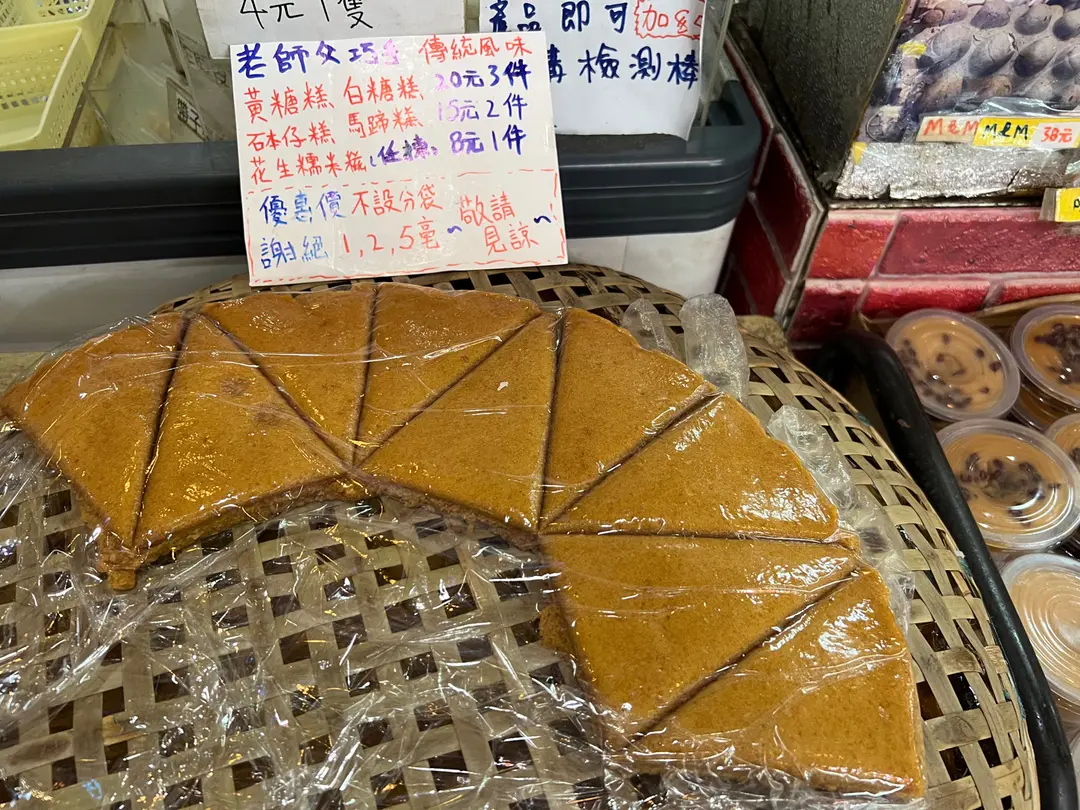 4元1隻
老師父巧手 傳統風味
黃糖糕 白糖糕 20元3件
砵仔糕 馬蹄糕 15元2件
花生糯米糍(任揀) 8元1件
優惠價 不設分袋 敬請
謝絕 1,2,5毫~ 見諒~
產品即可
檢測棒
M&M M&M 38元